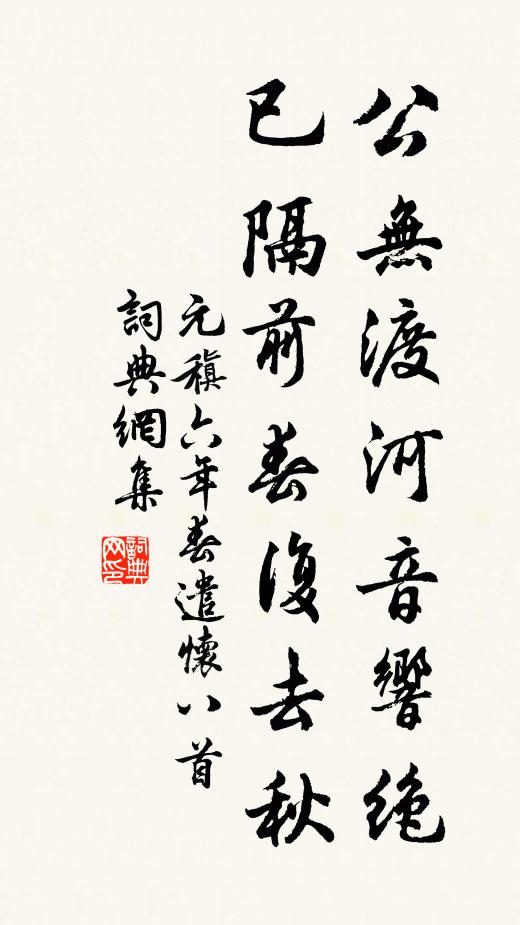 公無渡河音響絶
已隔前春復去秋
元稹六年春遣懷八首
詞典網集
詞典網印